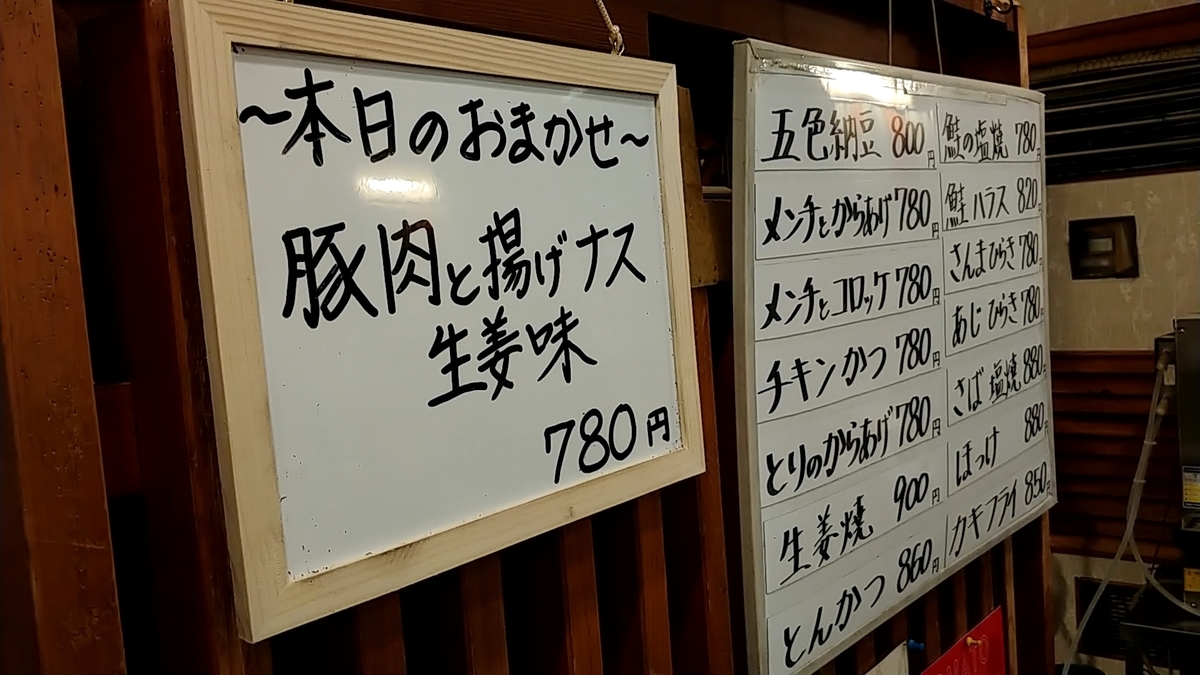 ～本日のおまかせ～
豚肉と揚げナス
生姜味
780円
五色納豆 800円
メンチとからあげ 780円
メンチとコロッケ 780円
チキンかつ 780円
とりのからあげ 780円
生姜焼 900円
とんかつ 860円
鮭の塩焼 780円
鮭ハラス 820円
さんまひらき 780円
あじひらき 780円
さば塩焼 880円
ほっけ 880円
カキフライ 850円